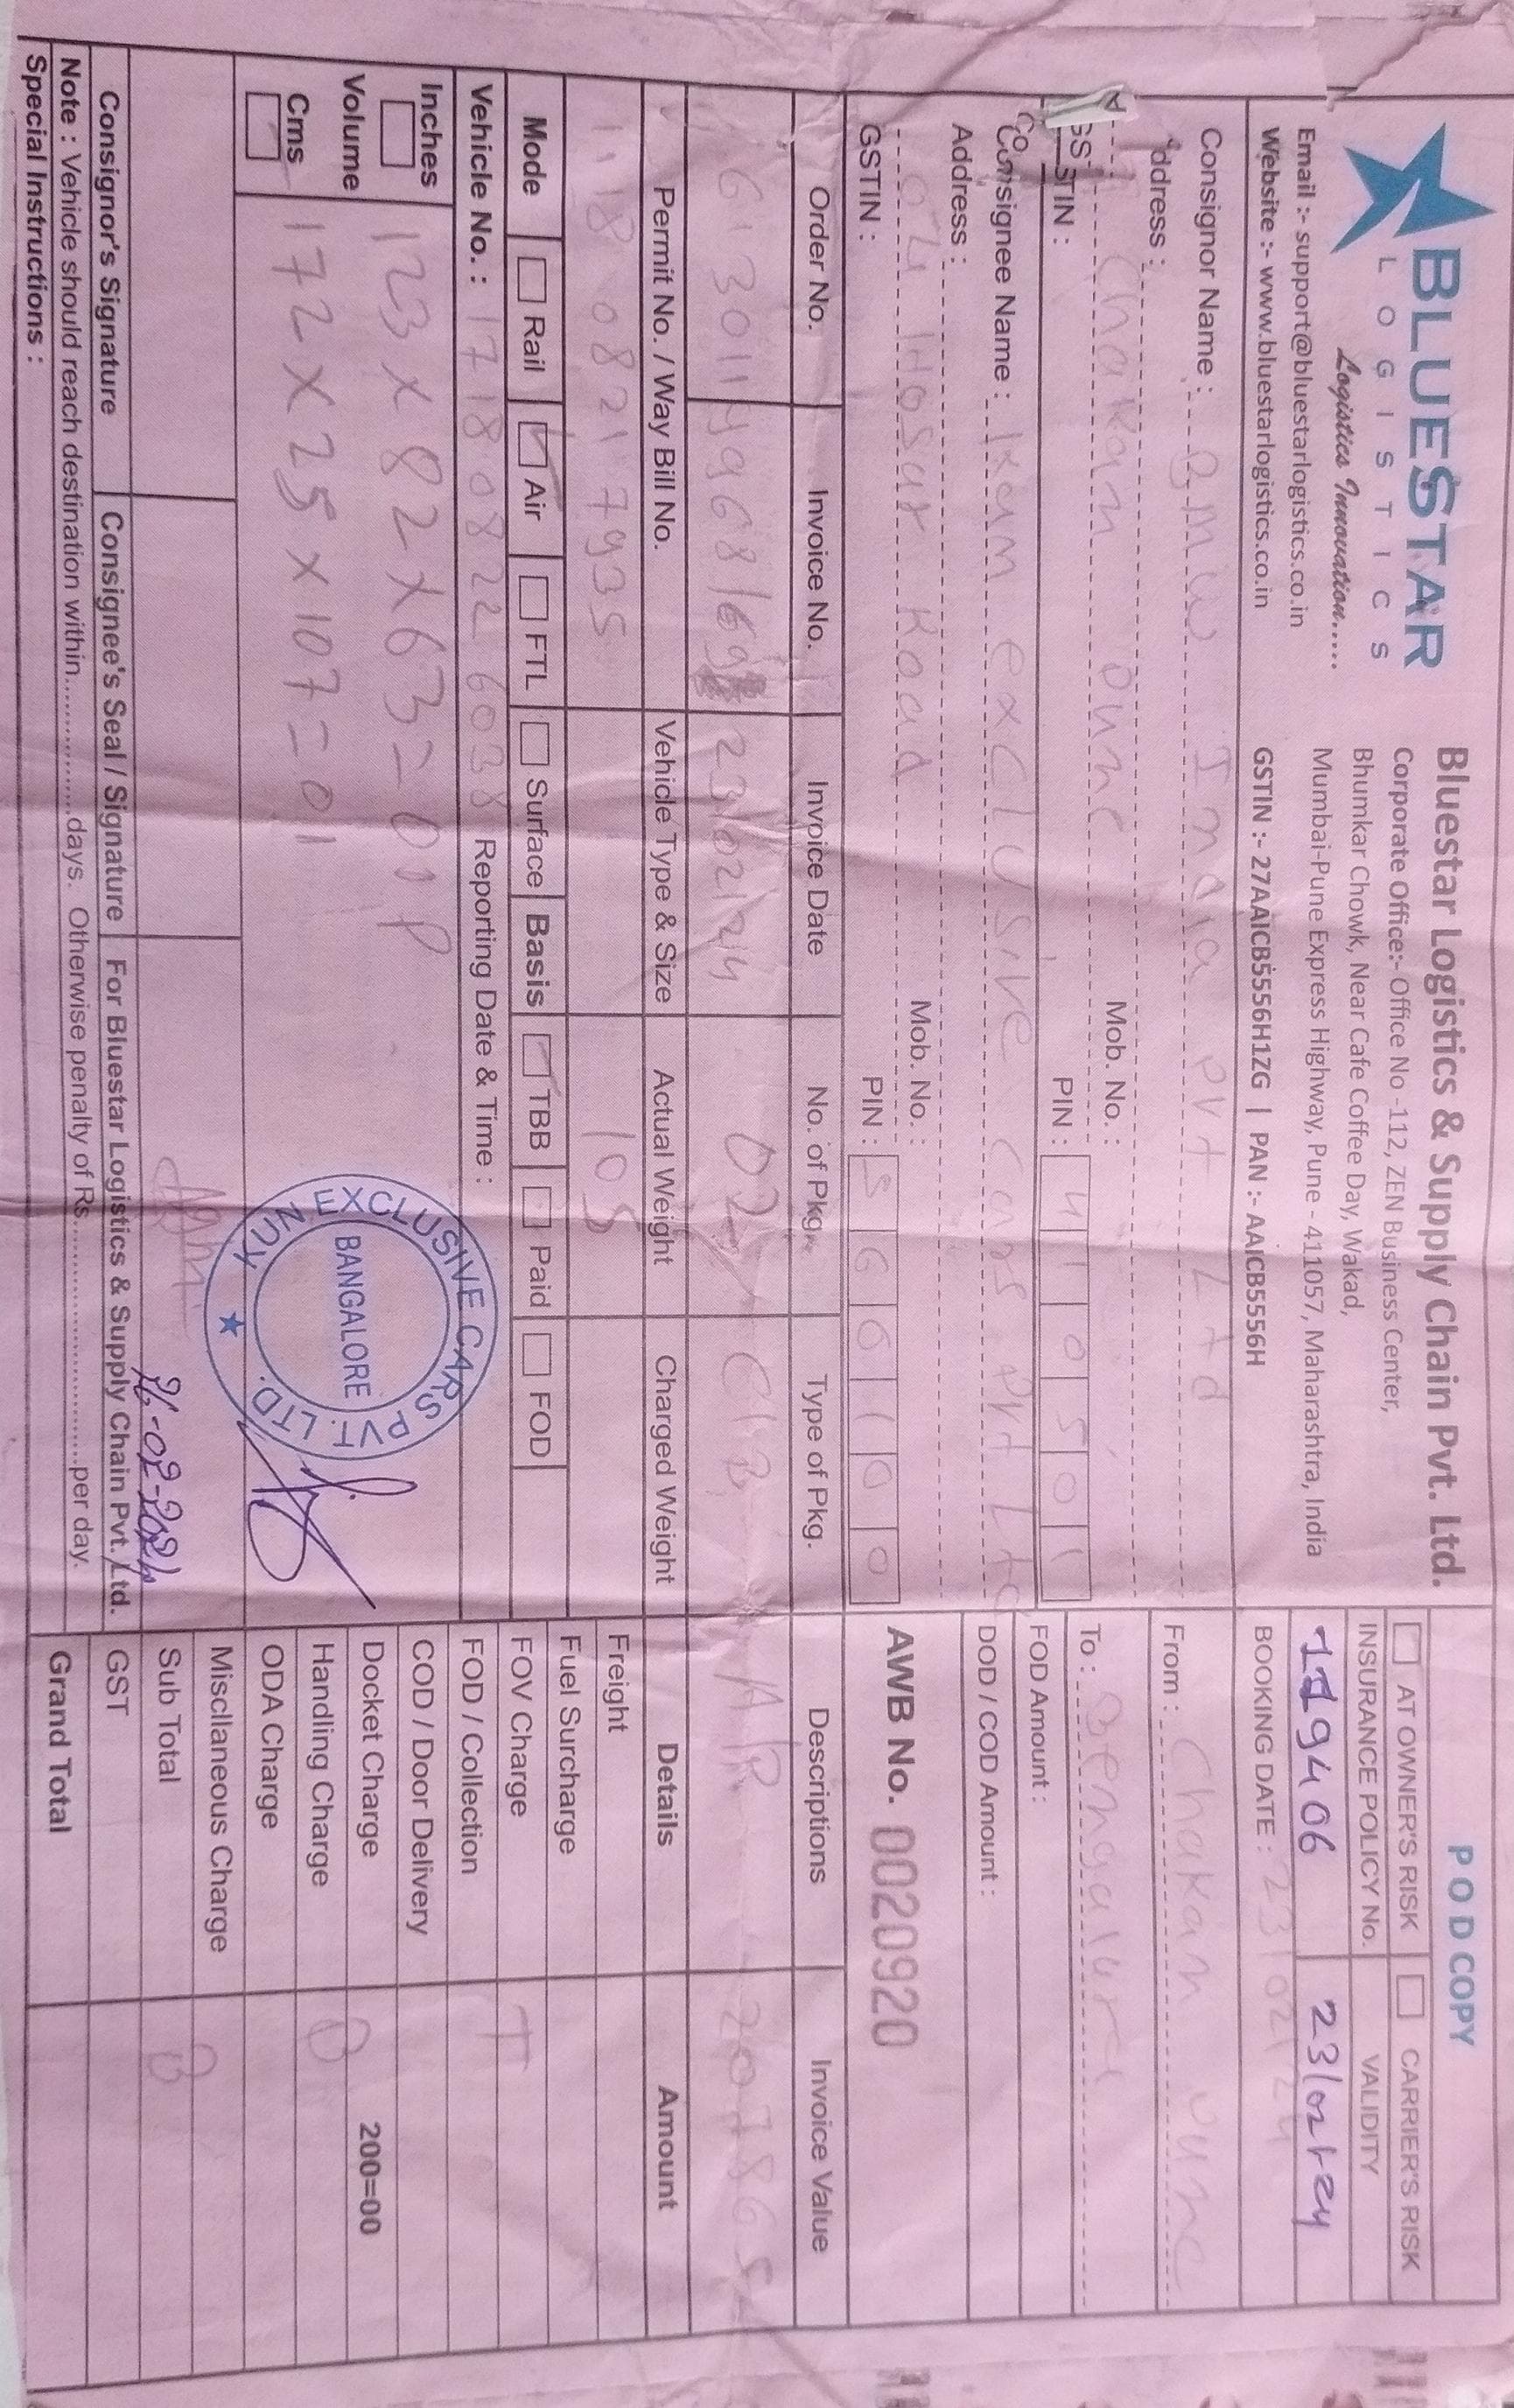 BLUESTAR
LOGISTICS
Logistics Innovation.....
Email :- support@bluestarlogistics.co.in
Website :- www.bluestarlogistics.co.in
Bluestar Logistics & Supply Chain Pvt. Ltd.
Corporate Office:- Office No -112, ZEN Business Center,
Bhumkar Chowk, Near Cafe Coffee Day, Wakad,
Mumbai-Pune Express Highway, Pune - 411057, Maharashtra, India
GSTIN :- 27AAICB5556H1ZG | PAN :- AAICB5556H
POD COPY
AT OWNER'S RISK CARRIER'S RISK
INSURANCE POLICY No. VALIDITY
119406 23/02/24
BOOKING DATE : 23/02/24
Consignor Name : BMW India Pvt Ltd
ddress :
Chakan Pune Mob. No. :
GSTIN : PIN : 410501
From : Chakan Pune
To : Bengaluru
FOD Amount :
DOD / COD Amount :
Consignee Name : Kun exclusive Cars Pvt Ltd
Address :
04 Hosur Road Mob. No. :
GSTIN : PIN : 560100
AWB No. 0020920
Order No. Invoice No. Invoice Date No. of Pkg. Type of Pkg. Descriptions Invoice Value
6130114968/69 23/02/24 02 C/B A/R 207865
Permit No. / Way Bill No. Vehicle Type & Size Actual Weight Charged Weight Details Amount
1118 0821 7935 105
Mode Rail Air FTL Surface Basis TBB Paid FOD
Vehicle No. : 1718 0822 6038 Reporting Date & Time :
Inches
123 x 82 x 63 = 01 P
Volume
172 x 25 x 107 = 01
Cms
KUN EXCLUSIVE CARS PVT. LTD.
BANGALORE
26-02-2024
Freight
Fuel Surcharge
FOV Charge T
FOD / Collection
COD / Door Delivery
Docket Charge 200=00
Handling Charge B
ODA Charge
Miscllaneous Charge
Sub Total B
GST
Grand Total
Consignor's Signature Consignee's Seal / Signature For Bluestar Logistics & Supply Chain Pvt. Ltd.
Note : Vehicle should reach destination within................days. Otherwise penalty of Rs.............................per day.
Special Instructions :